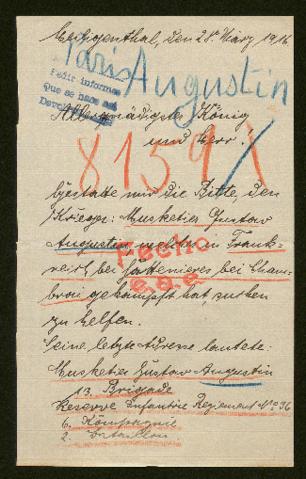 den 28. März 1916
Paris Augustin
Pedir informes
Que se hace asi
Allergnädigster König
und Herr.
81591
Gestatte mir die Bitte, den
Kriegs: Musketier Gustav
Augustin, welcher in Frank-
reich bei bei
gekämpft hat, suchen
zu helfen.
Fecho
Seine letzte Adresse lautete:
Musketier Gustav Augustin
13. Brigade
Reserve Infantrie Regiement No 36
6. Kompagnie
2. Bataillon